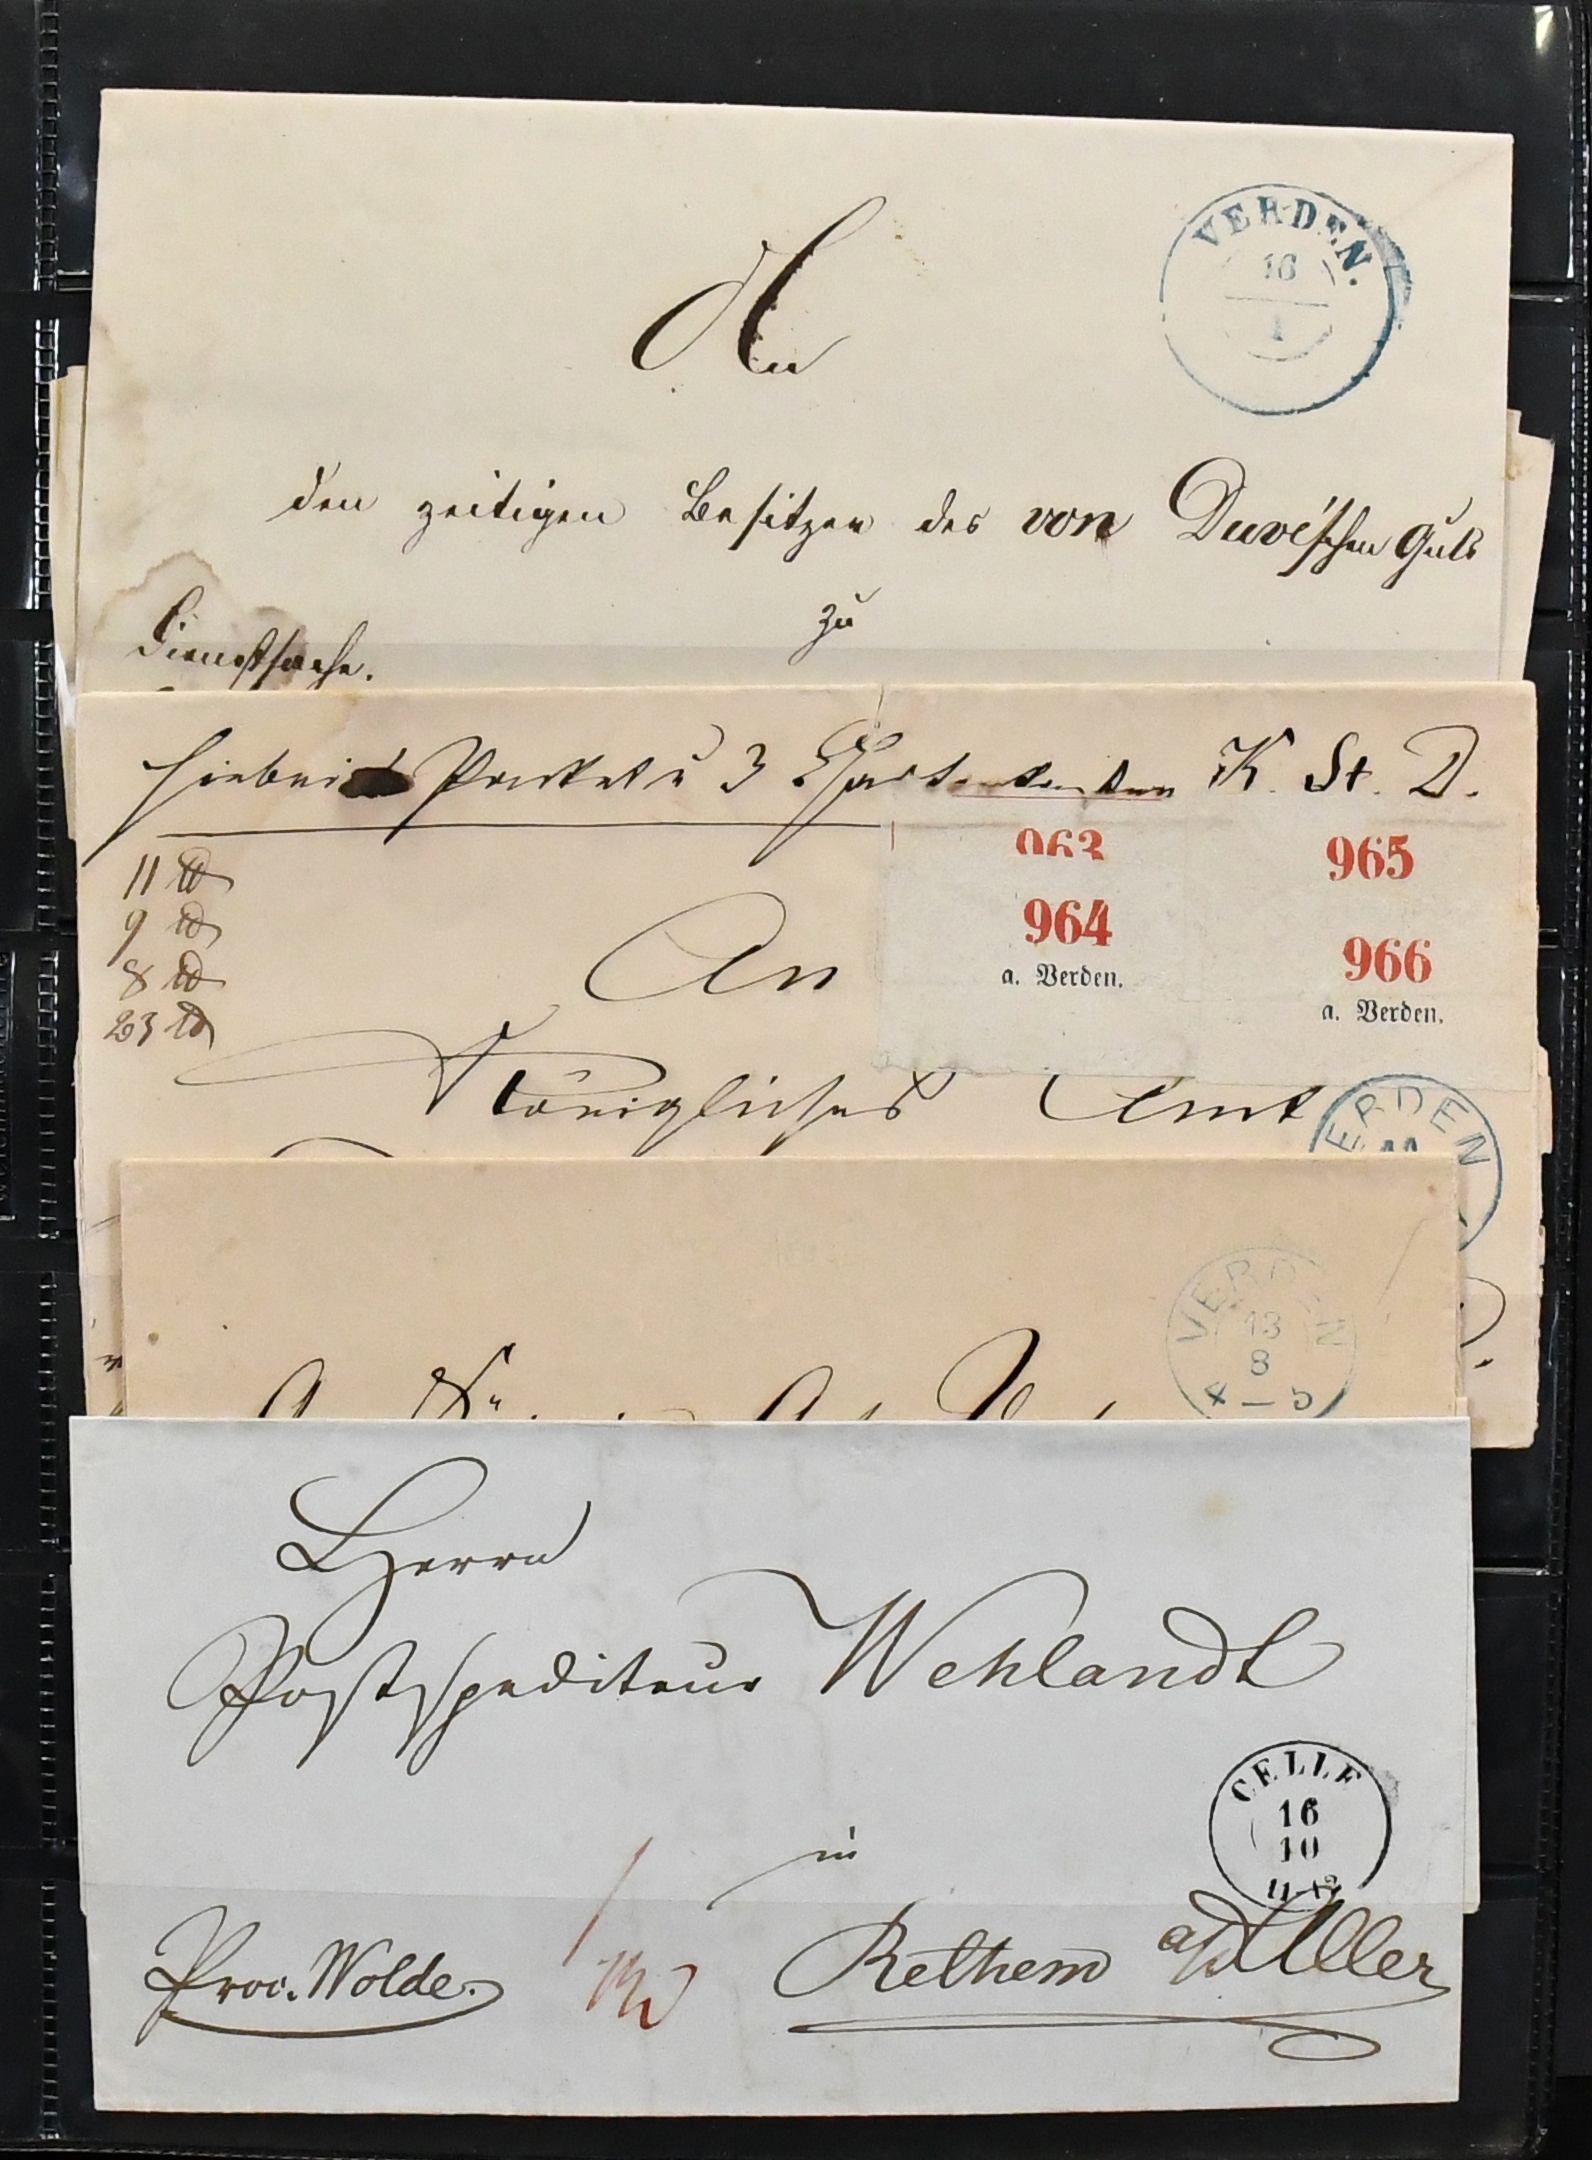 VERDEN.
16
1
An
den zeitigen Besitzer des von Duve'schen Guts
zu
Dienstsache.
Hiebei Packet u 3 K. St. D.
11 ℔
9 ℔
8 ℔
23 ℔
963
964
a. Verden.
965
966
a. Verden.
An
Königliches Amt
ERDEN
VERDEN
13
8
4 — 5
Herrn
Postspediteur Wehlandt
CELLE
16
10
11-12
in
Rethem a/d Aller
Prov. Wolde.